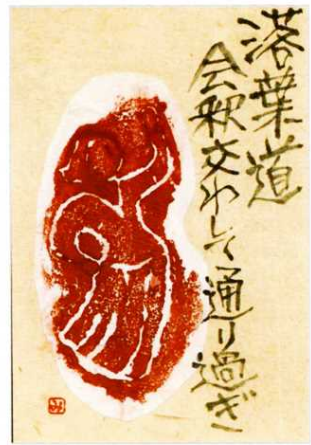 落葉道
会釈交わして通り過ぎ